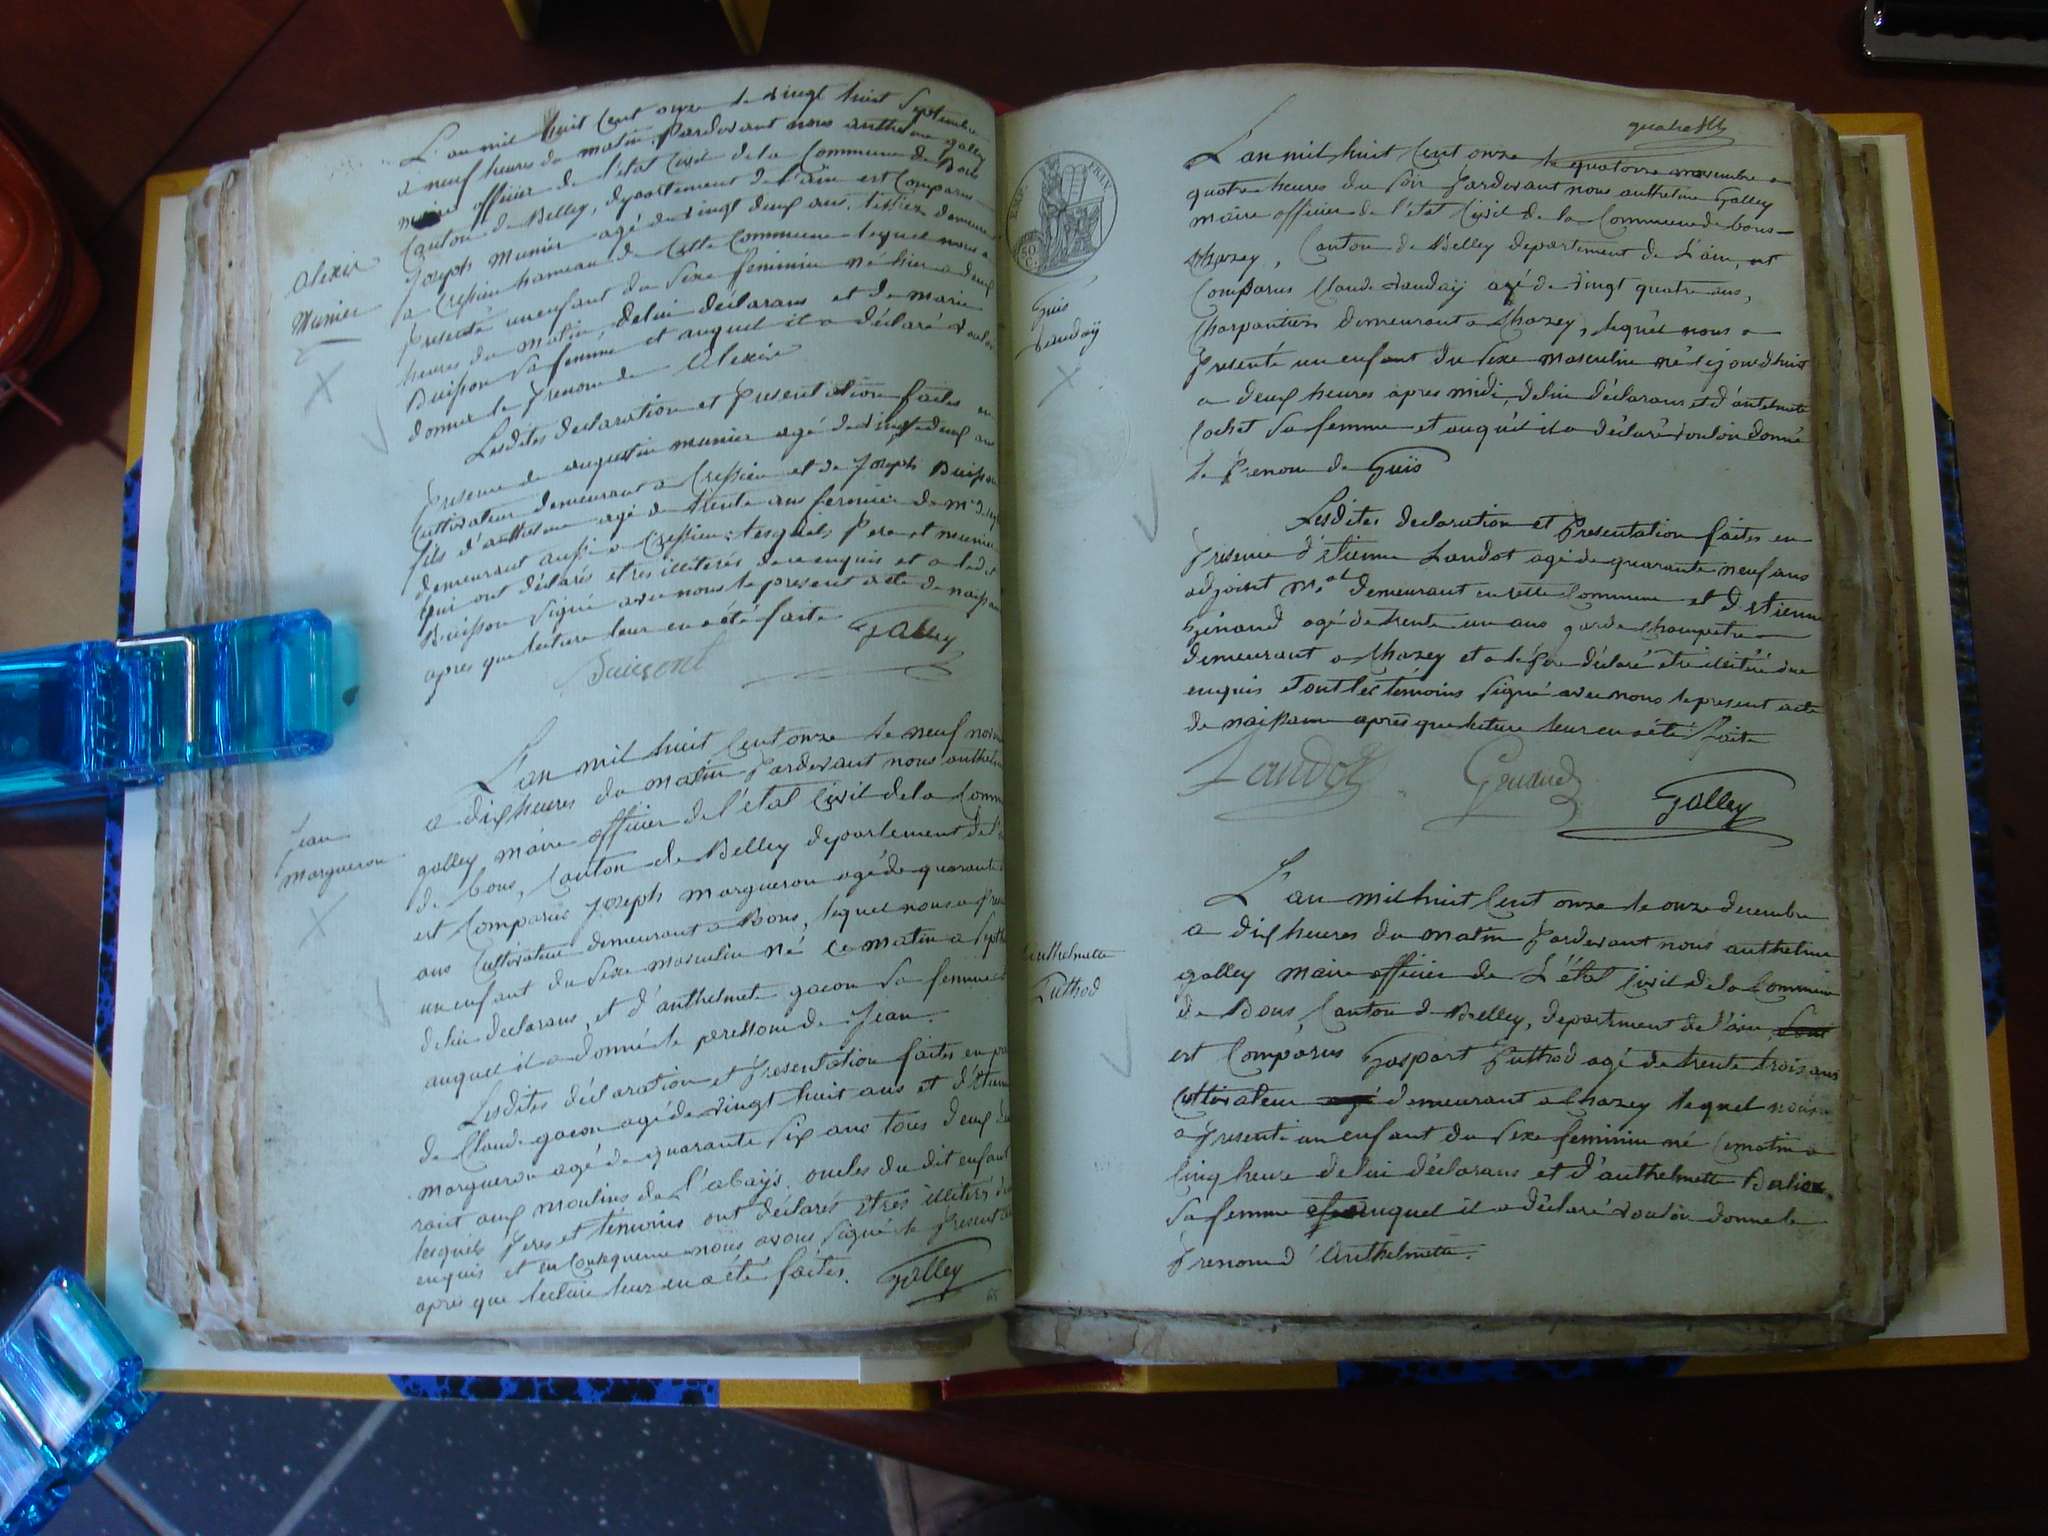 L'an mil huit Cent onze le vingt huit Septembre
a neuf heures du matin, Pardevant nous anthelme galley
maire officier de l'état Civil de la Commune de Bons
Canton de Belley, département de l'ain est Comparus
Joseph Munier agé de vingt deux ans, tissier demeurant
a Cressieu hameau de Cette Commune lequel nous a
Presenté un enfant du Sexe feminin né hier a deux
heures du matin, de lui déclarans et de marie
Buisson Sa femme et auquel il a déclaré vouloir
donner le Prenom de Alexie
Alexie
Munier
Lesdites déclaration et Presentation faites en
Presence de augustin munier agé de vingt deux ans
Cultivateur demeurant a Cressieu et de Joseph Buisson
fils d'anthelme agé de trente ans fermier de Mr
demeurant aussi a Cressieu; lesquels Pere et munier
qui ont déclarés etres illiterés de ce enquis et a ledit
Buisson Signé avec nous le present acte de naissance
après que lecture leur en a été faite
Galley
Buissont
L'an mil huit Cent onze le neuf novembre
a dix heures du matin Pardevant nous anthelme
galley maire officier de l'état Civil de la Commune
de bons, Canton de Belley département de l'ain
est Comparus Joseph margueron agé de quarante
ans Cultivateur demeurant a Bons, lequel nous a presenté
un enfant du Sexe masculin né ce matin a Sept heures
de lui déclarans, et d'anthelmete gacon Sa femme et
auquel il a donné le prenom de Jean.
Jean
Margueron
Lesdites déclaration et Presentation faites en presence
de Claude gacon agé de vingt huit ans et d'Etienne
margueron agé de quarante Six ans tous deux demeu-
rant aux moulins de l'abaÿs, oncles du dit enfant
lesquels Peres et témoins ont déclarés etres illiterés de ce
enquis et en Consequence nous avons Signé le Present acte
après que lecture leur en a été faites.
Galley
65
quatre
EMP. FRANÇ.
50 C.
L'an mil huit Cent onze le quatorze novembre a
quatre heures du Soir Pardevant nous anthelme Galley
maire officier de l'état Civil de la Commune de bons-
Chazey, Canton de Belley departement de l'ain, est
Comparus Claude vauday agé de vingt quatre ans,
Charpentier demeurant a Chazey, lequel nous a
Presenté un enfant du Sexe masculin né cejourd'huit
a deux heures après midi, de lui déclarans et d'antelmete
Cochet Sa femme et auquel il a déclaré vouloir donné
le Prenom de Guïs
Guis
vaudaÿ
Lesdites declaration et Presentation faites en
Presence d'Etienne Landot agé de quarante neuf ans
adjoint M.al demeurant en cette Commune et d'Etienne
Génand agé de trente un ans garde Champetre
demeurant a Chazey et a le Pere déclaré etre illiteré de ce
enquis et ont les témoins Signé avec nous le present acte
de naissance après que lecture leur en a été faite
Landot
Genand
Galley
L'an mil huit Cent onze le onze decembre
a dix heures du matin Pardevant nous anthelme
galley maire officier de L'état Civil de la Commune
de Bons, Canton de Belley, departement de l'ain
est Comparus Gaspart Puthod agé de trente trois ans
Cultivateur demeurant a Chazey lequel nous
a Presenté un enfant du Sexe feminin né Cematin a
Cinq heure de lui déclarans et d'anthelmette Berlioz
Sa femme auquel il a déclaré vouloir donne le
Prenom d'Anthelmette.
Anthelmette
Puthod